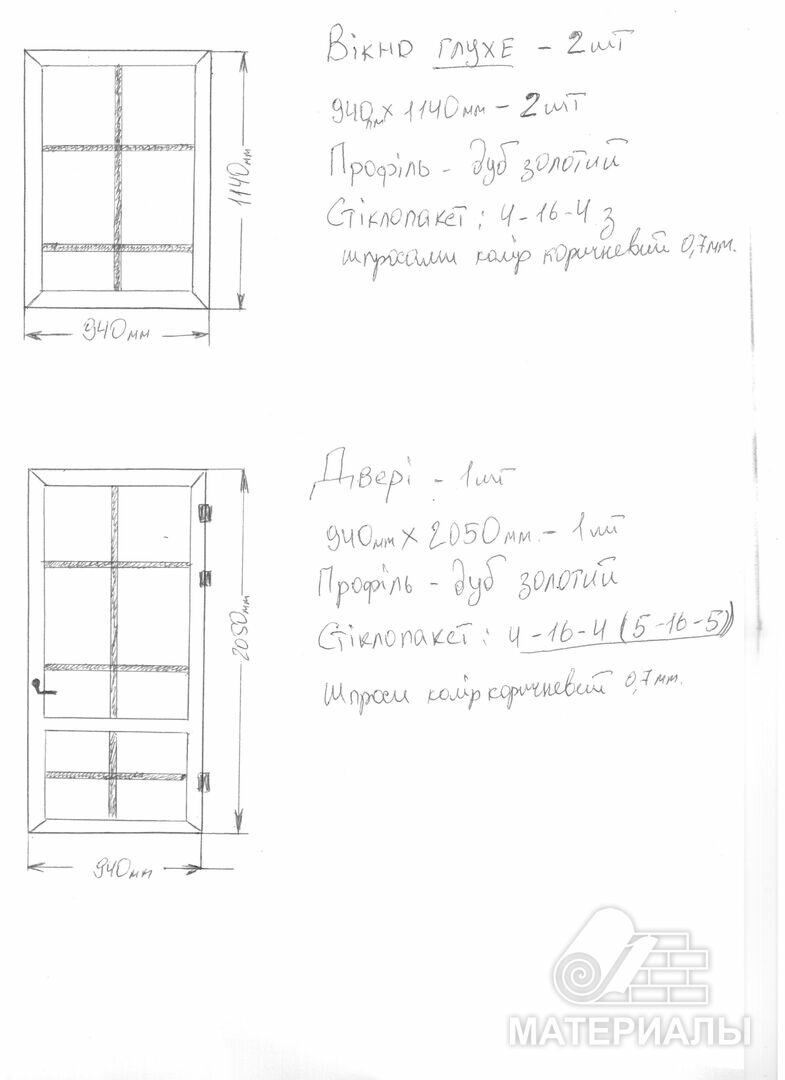 Вікно глухе - 2шт
940мм х 1140мм - 2шт
Профіль - дуб золотий
Стіклопакет: 4-16-4 з
шпросами колір коричневий 0,7мм.
1140мм
940мм
Двері - 1шт
940мм х 2050мм. - 1шт
Профіль - дуб золотий
Стіклопакет: 4-16-4 (5-16-5)
Шпроси колір коричневий 0,7мм.
2050мм
940мм
МАТЕРИАЛЫ